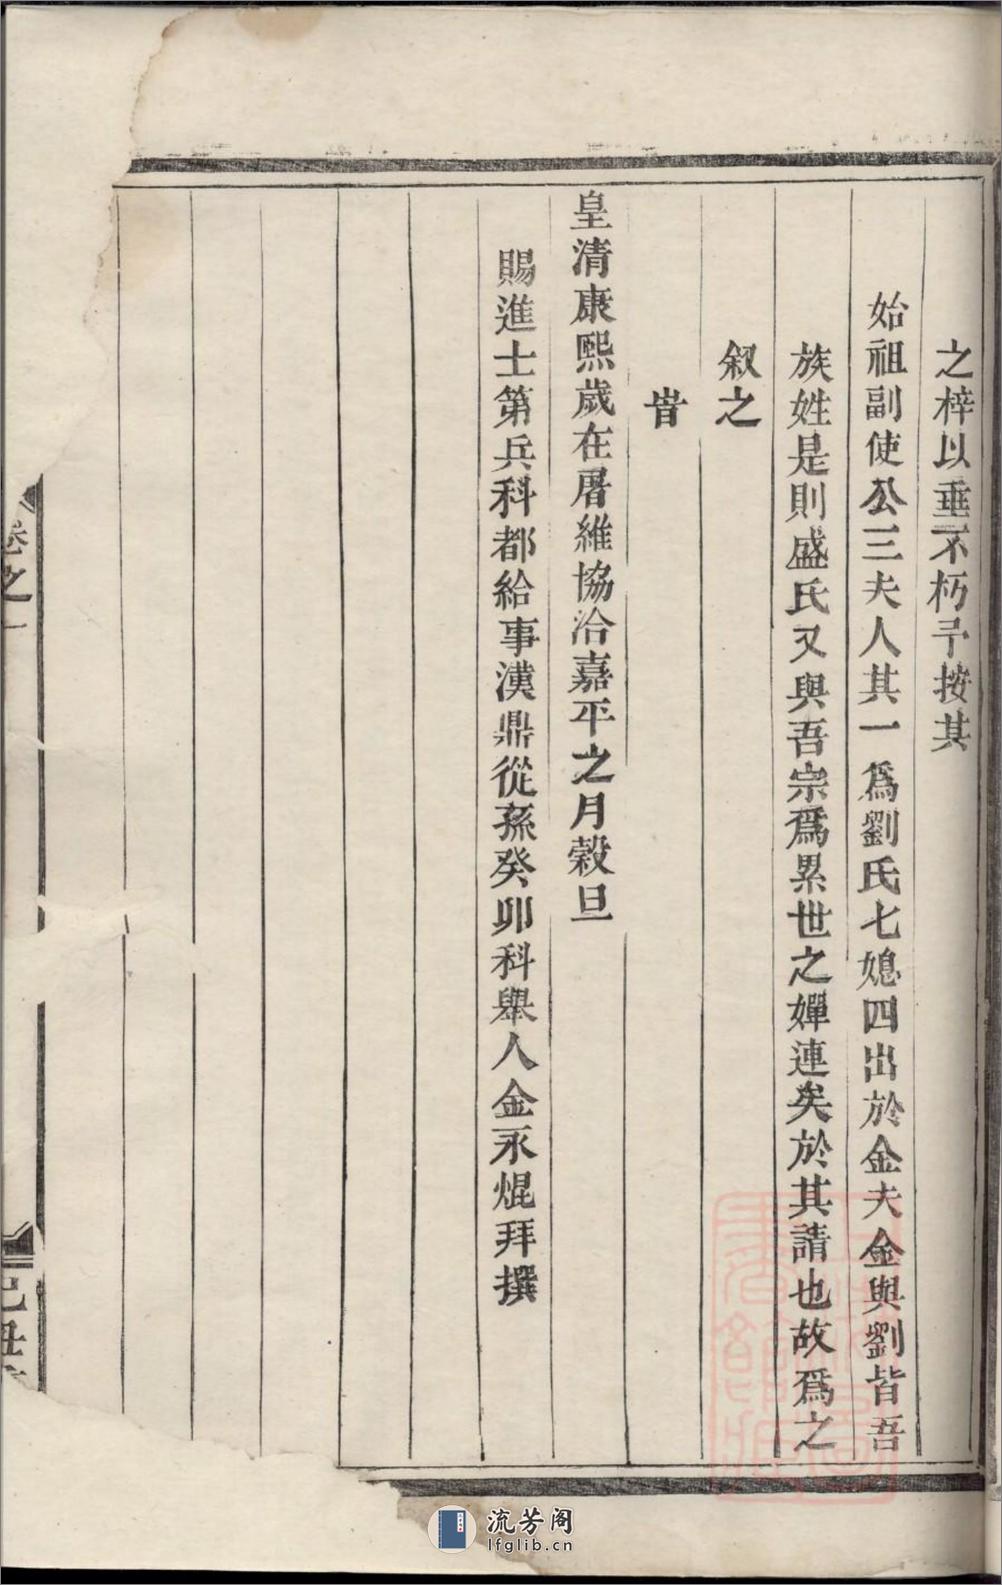 之梓以垂不朽予按其
始祖副使公三夫人其一爲劉氏七媳四出於金夫金與劉皆吾
族姓是則盛氏又與吾宗爲累世之嬋連矣於其請也故爲之
叙之
旹
皇清康熙歲在屠維協洽嘉平之月穀旦
賜進士第兵科都給事漢鼎從孫癸卯科舉人金永焜拜撰
卷之一
己丑
流芳阁
lfglib.cn